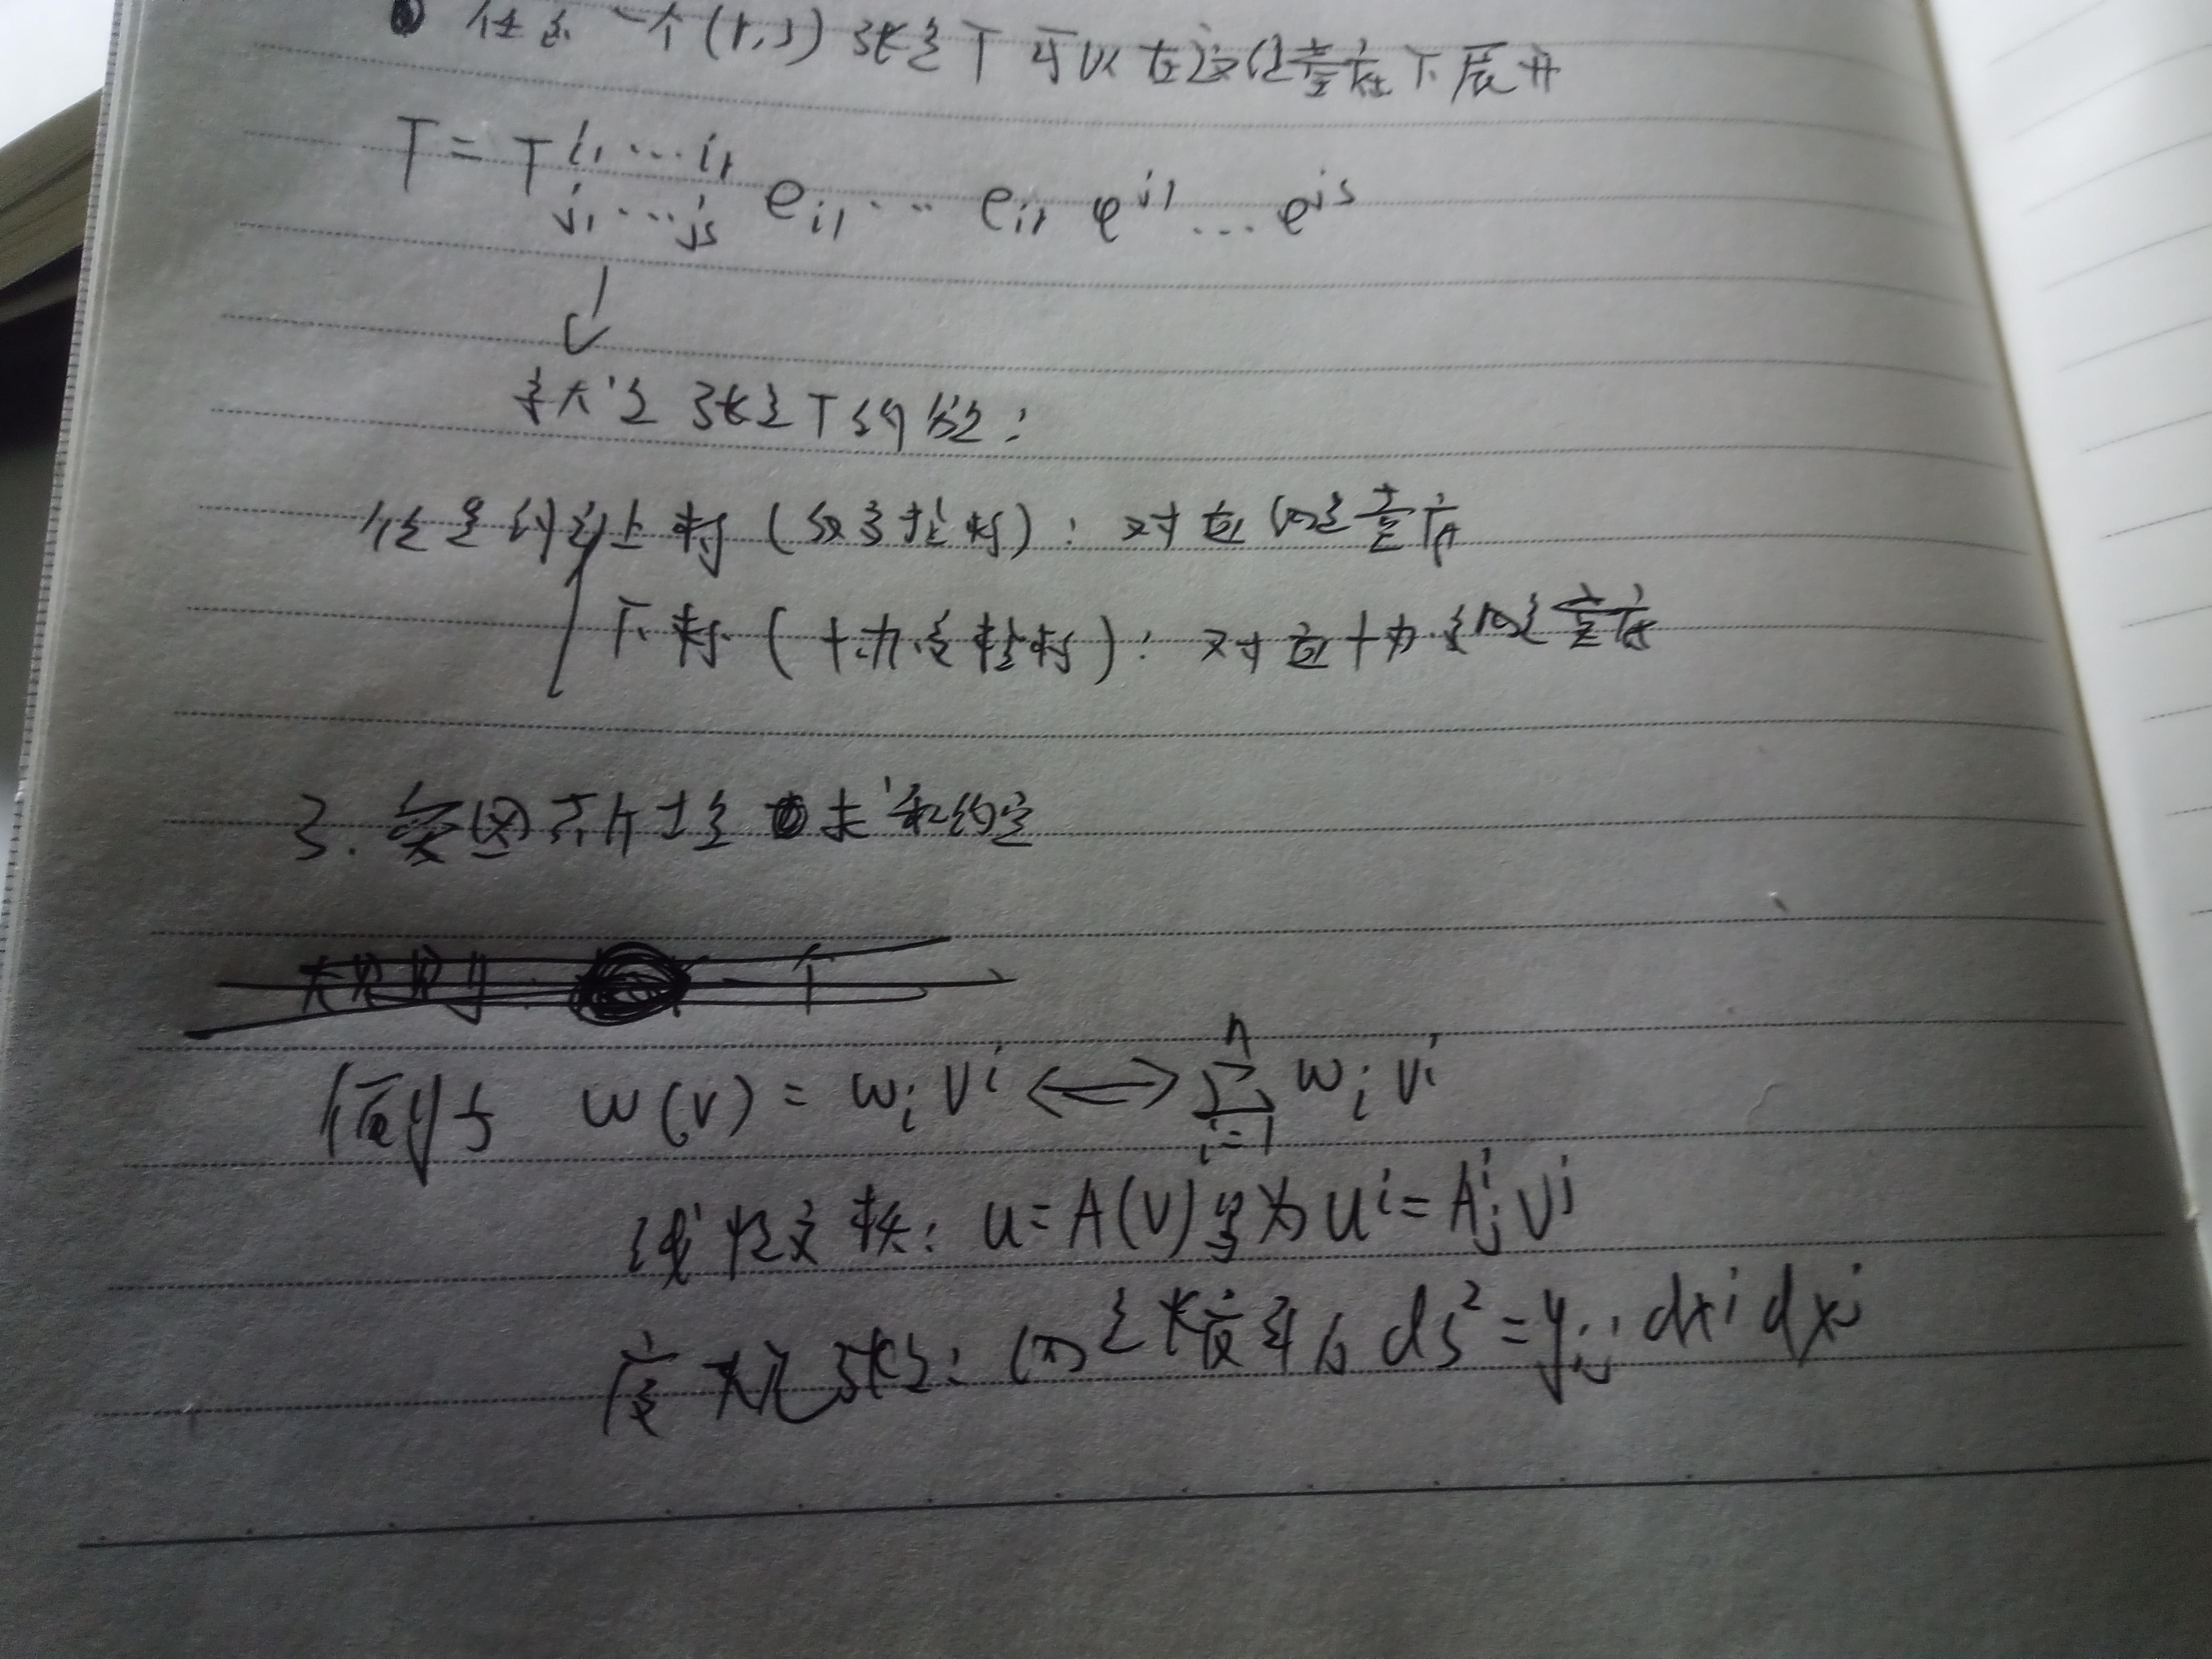 任意一个(r,s)张量T可以在这组基底下展开
T = T^{i₁...i_r}_{j₁...j_s} e_{i1} ... e_{ir} e^{j1} ... e^{js}
↓
称之张量T的分量:
任意的 上标(逆变指标): 对应 向量基底
下标(协变指标): 对应协变向量基底
3. 爱因斯坦求和约定
例如 w(v) = w_i v^i ⟺ \sum_{i=1}^{n} w_i v^i
线性变换: u = A(v) 写为 u^i = A^i_j v^j
度规张量: 向量长度平方 ds² = g_{ij} dx^i dx^j